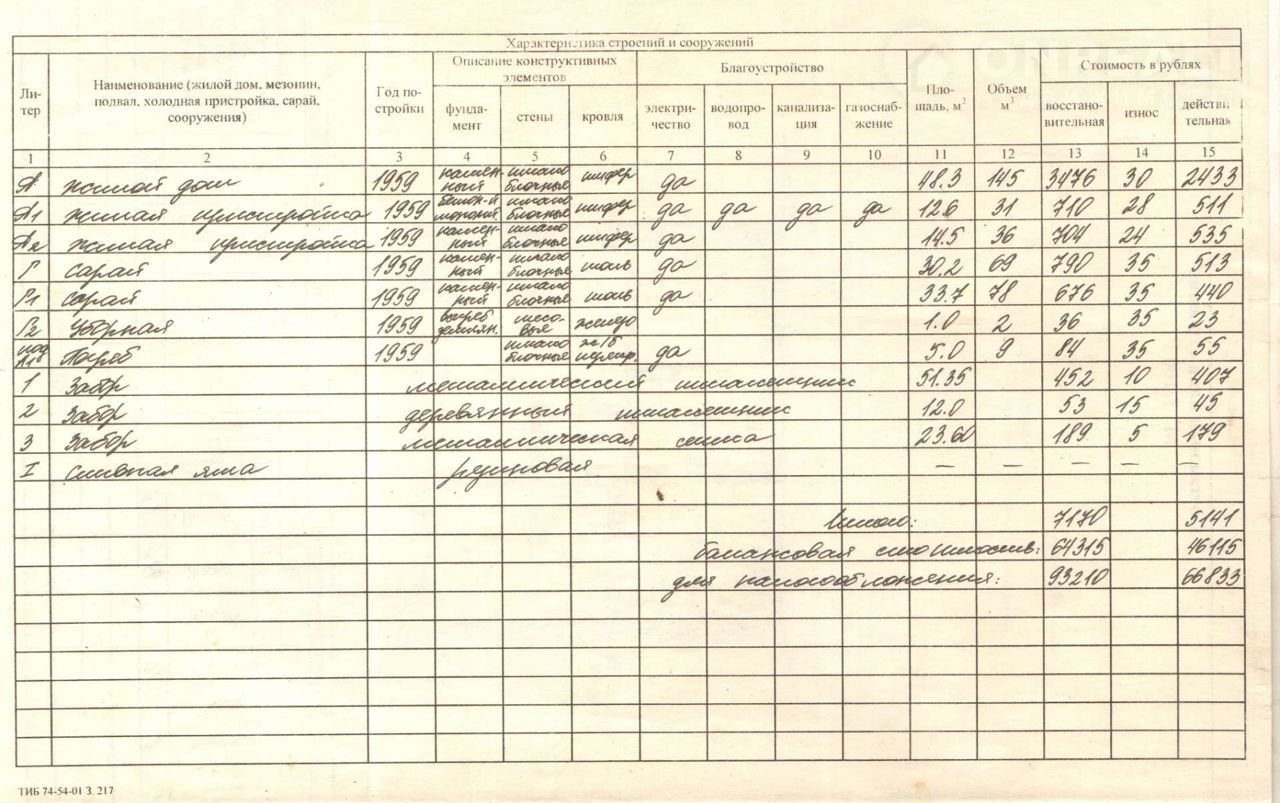 Характеристика строений и сооружений
Ли-тер | Наименование (жилой дом, мезонин, подвал, холодная пристройка, сарай, сооружения) | Год по-стройки | Описание конструктивных элементов | Благоустройство | Пло-щадь, м² | Объем м³ | Стоимость в рублях
фунда-мент | стены | кровля | электри-чество | водопро-вод | канализа-ция | газоснаб-жение | восстано-вительная | износ | действи тельная
1 | 2 | 3 | 4 | 5 | 6 | 7 | 8 | 9 | 10 | 11 | 12 | 13 | 14 | 15
А | жилой дом | 1959 | камен-ный | шлако блочные | шифер | да | 48.3 | 145 | 3476 | 30 | 2433
А1 | жилая пристройка | 1959 | шлако блочные | шифер | да | да | да | да | 12.6 | 31 | 710 | 28 | 511
А2 | жилая пристройка | 1959 | камен-ный | шлако блочные | шифер | да | 14.5 | 36 | 704 | 24 | 535
Г | сарай | 1959 | камен-ный | шлако блочные | толь | да | 30.2 | 69 | 790 | 35 | 513
Г1 | сарай | 1959 | камен-ный | шлако блочные | толь | да | 33.7 | 78 | 676 | 35 | 440
Г2 | Уборная | 1959 | выгреб землян. | тесо-вые | железо | 1.0 | 2 | 36 | 35 | 23
под А1 | Погреб | 1959 | шлако блочные | ж/б | да | 5.0 | 9 | 84 | 35 | 55
1 | Забор | металлический штакетник | 51.35 | 452 | 10 | 407
2 | Забор | деревянный штакетник | 12.0 | 53 | 15 | 45
3 | Забор | металлическая сетка | 23.60 | 189 | 5 | 179
I | сливная яма | резиновая | — | — | — | — | —
Итого: 7170 5141
балансовая стоимость: 64315 46115
для налогообложения: 93210 66833
ТИБ 74-54-01 З. 217